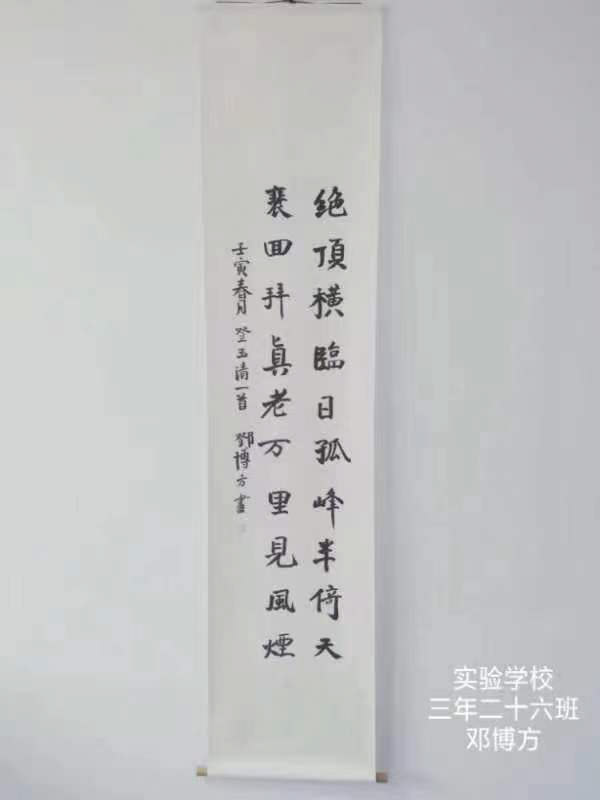 绝頂橫臨日孤峰半倚天
裴回拜真老万里見風煙
壬寅春月登玉清一首鄧博方書
实验学校
三年二十六班
邓博方